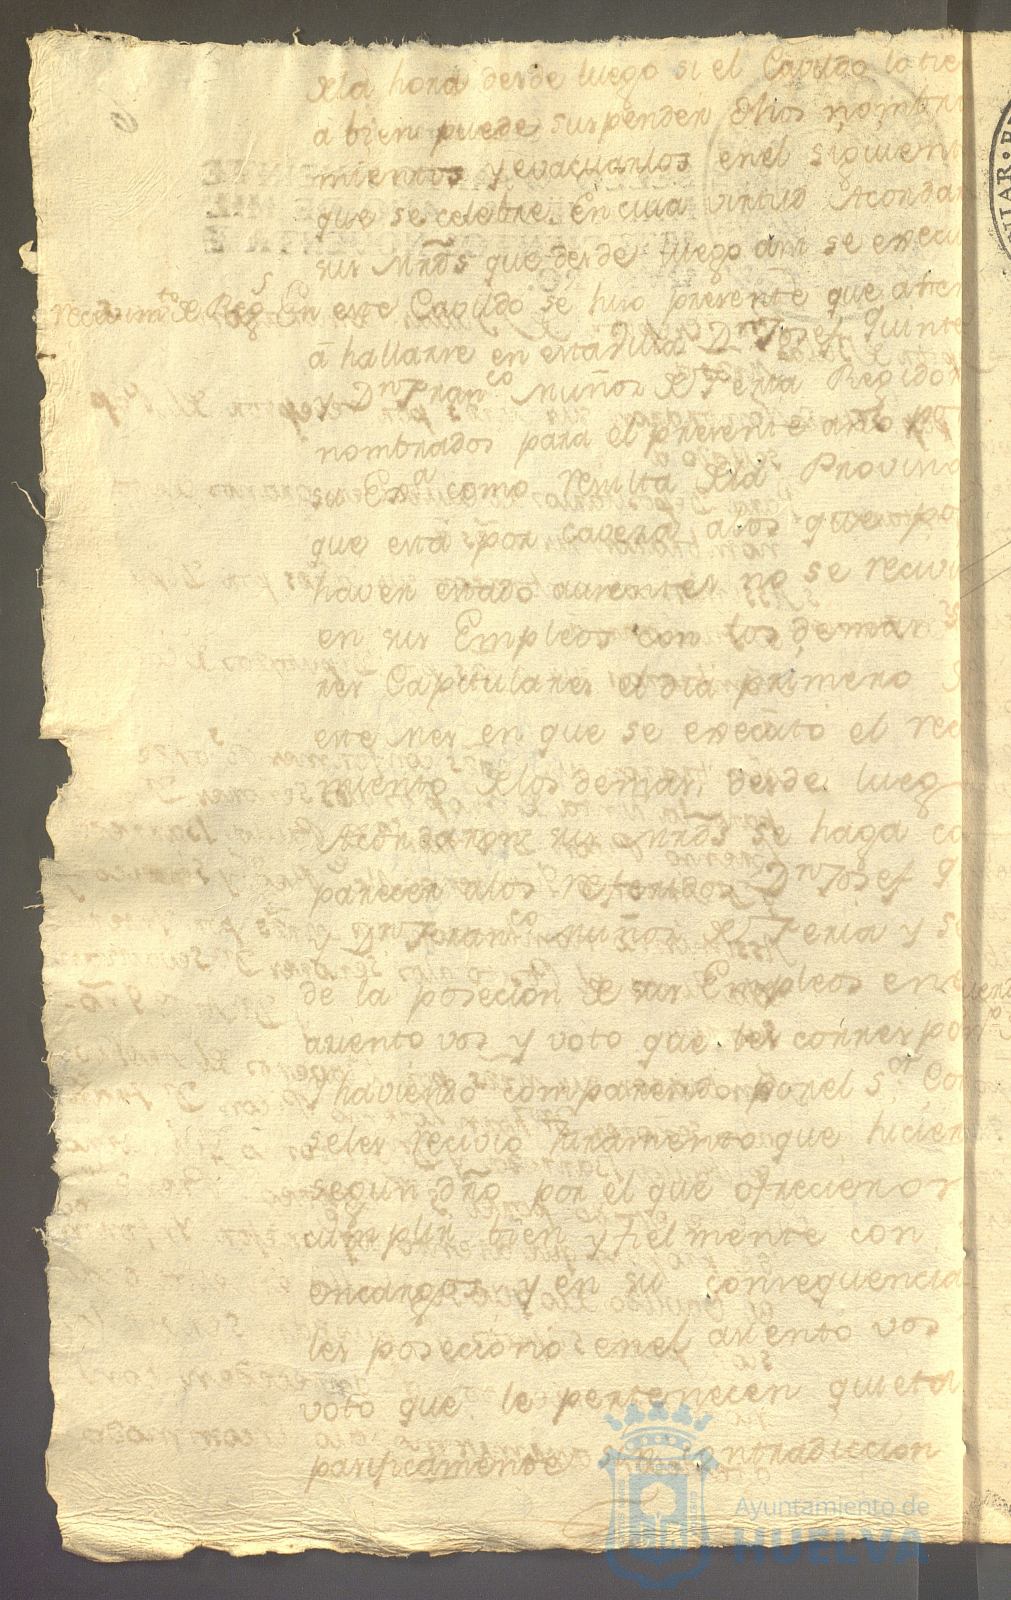 de la hora desde luego si el Cavildo lo tie
a bien puede suspender dhos nombra
mientos y evacuarlos en el siguient
que se celebre. En cuia virtud Acordar
sus Mrds que desde luego asi se execu
Recivimto de Regs En este Cavildo se hizo presente que aten
â hallarse en esta villa Dn Josef Quinte
y Dn Franco Muñoz de Feria Regidor
nombrados para el presente año po
su Exa como resulta de la Provin
que está por caveza a los que po
haver estado ausentes no se recivi
en sus Empleos con los demas S
res Capitulares el dia primero
este Mes en que se executo el rec
miento de los demas, desde lueg
Acordaron sus Mrds se haga co
parecer a los referidos Dn Josef Q
y Dn Franco Muñoz de Feria y s
de la posecion de sus Empleos en e
aciento vos y voto que les correspon
Y haviendo comparecido por el Sor Co
seles recivio juramento que hicier
segun dro por el que ofrecieron
cumplir bien y fielmente con
encargos y en su consequencia
les posecionó en el aciento vos
voto que le pertenecen quieta
pacificamente sin contradiccion
Ayuntamiento de
HUELVA